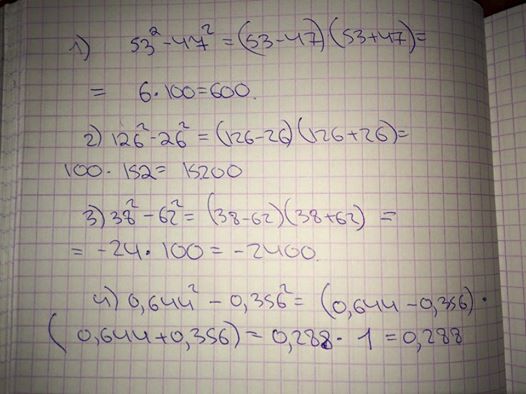 1) 53² - 47² = (53-47)(53+47)=
= 6·100=600.
2) 126² - 26² = (126-26)(126+26)=
100 · 152 = 15200
3) 38² - 62² = (38-62)(38+62) =
= -24 · 100 = -2400.
4) 0,644² - 0,356² = (0,644 - 0,356) ·
(0,644+0,356) = 0,288 · 1 = 0,288